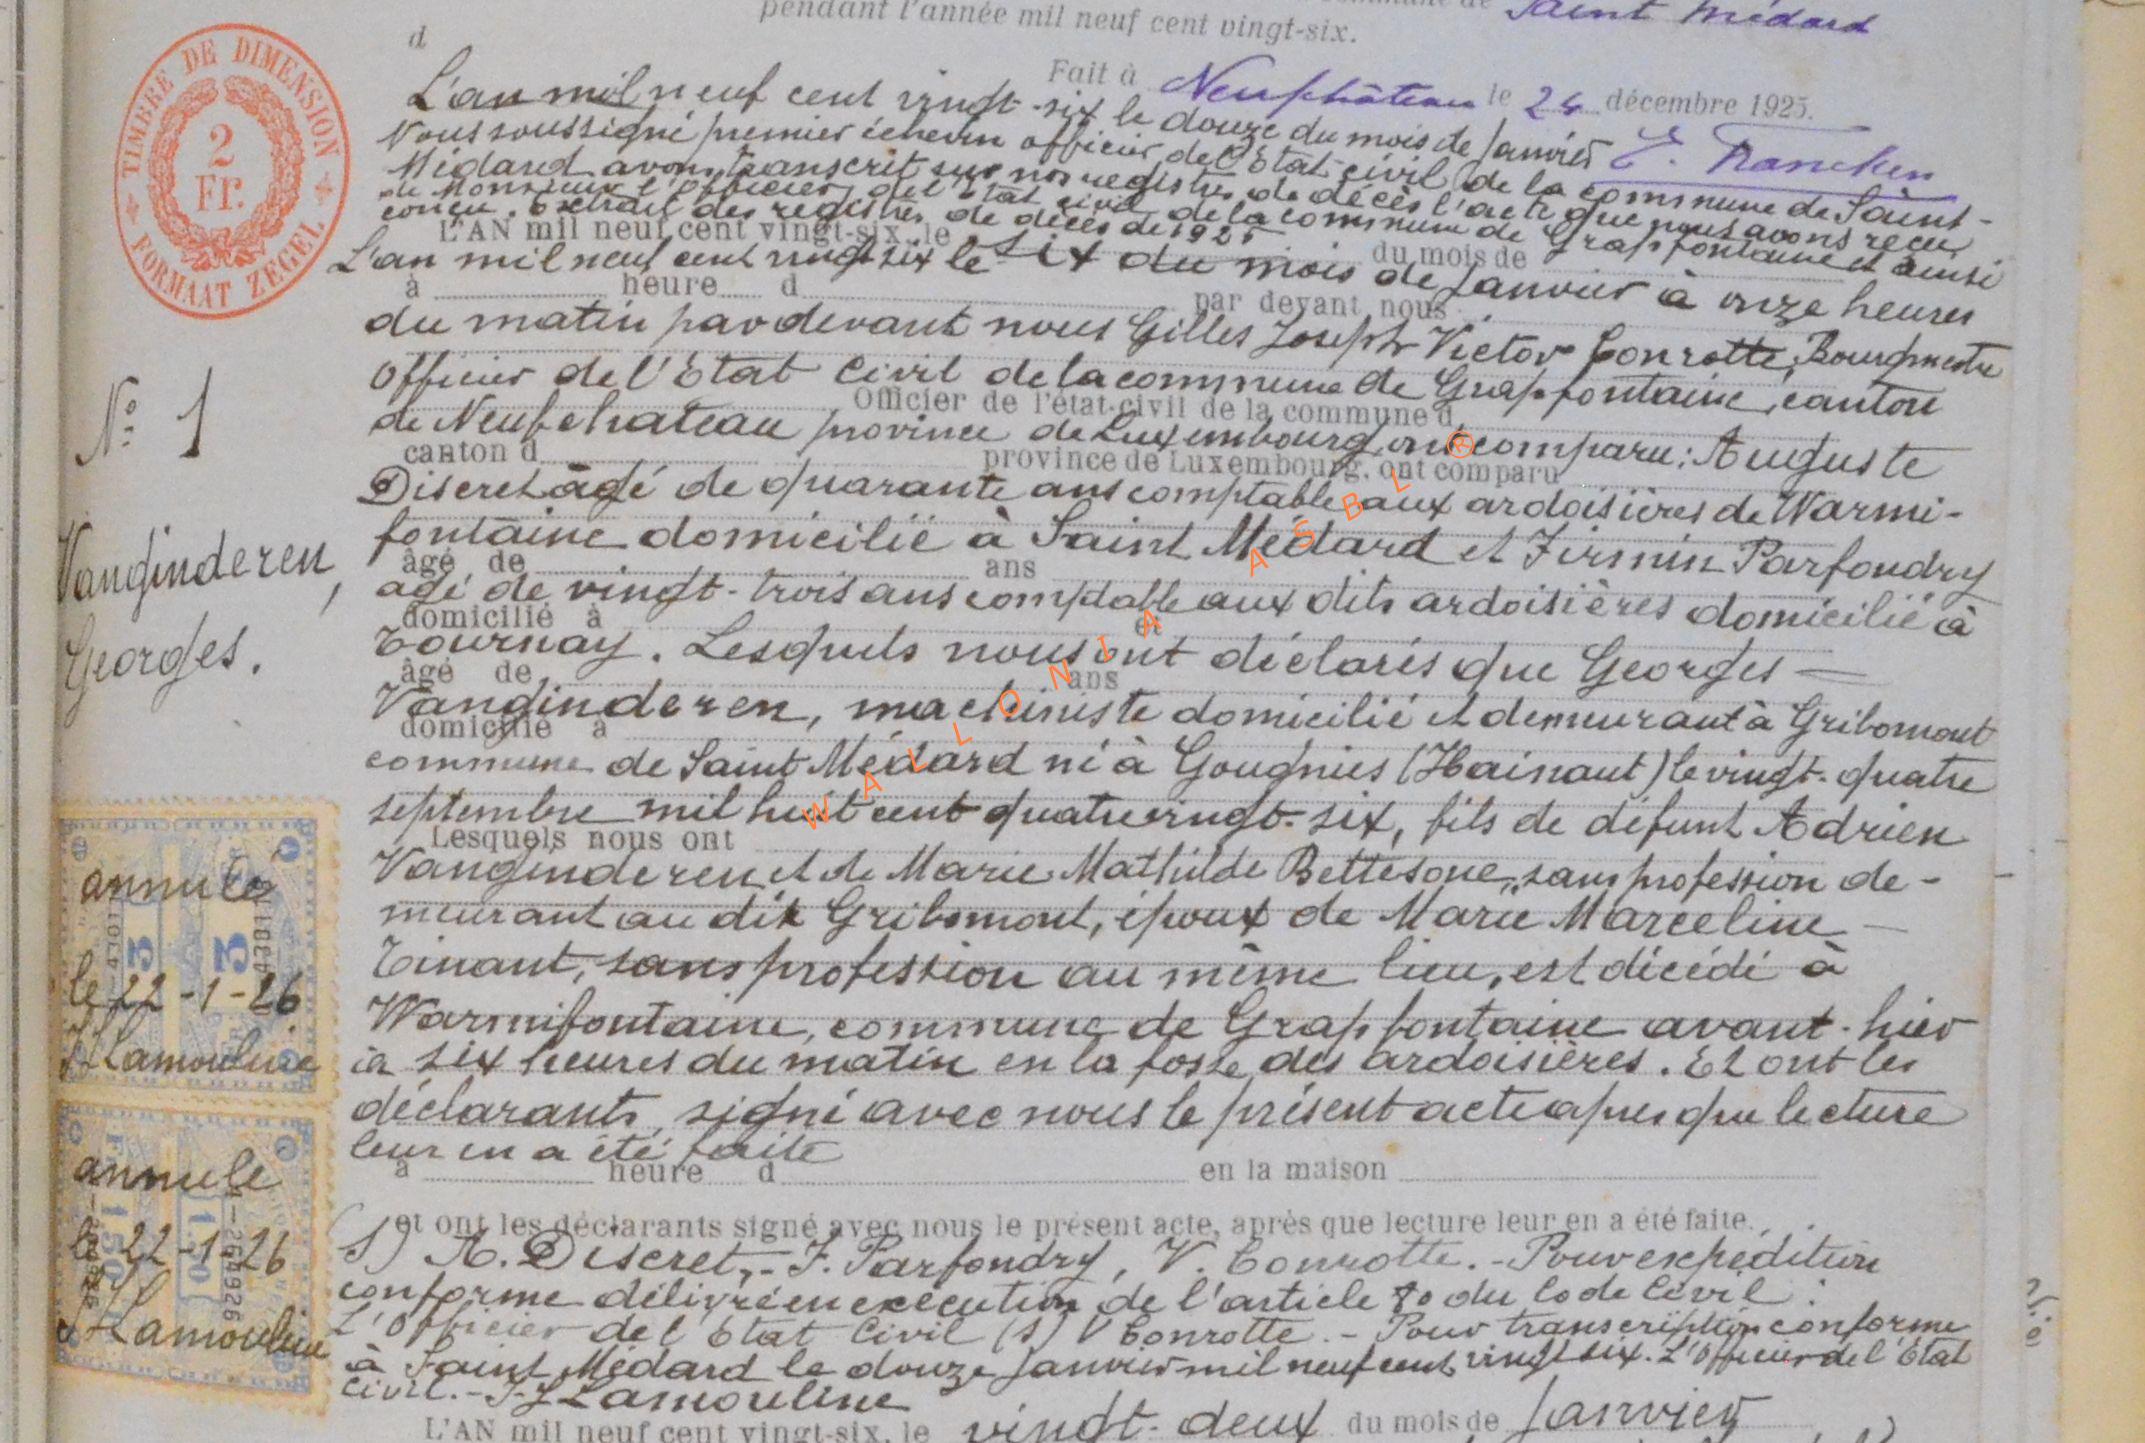 Saint Médard
pendant l'année mil neuf cent vingt-six.
d
Fait à Neufchâteau le 24 décembre 1925.
E. Francken
TIMBRE DE DIMENSION
2
Fr.
FORMAAT ZEGEL
L'an mil neuf cent vingt-six le douze du mois de Janvier
Nous soussigné premier échevin officier de l'Etat-civil de la commune de Saint-
Médard avons transcrit sur nos registres de décès l'acte que nous avons reçu
de Monsieur l'Officier de l'état civil de la commune de Grapfontaine et ainsi
conçu. Extrait des registres de décès de 1926
L'AN mil neuf cent vingt-six, le du mois de
L'an mil neuf cent vingt six le six du mois de Janvier à onze heures
à heure d par devant nous
du matin par devant nous Gilles Joseph Victor Conrotte, Bourgmestre
Officier de l'Etat Civil de la commune de Grapfontaine, canton
Officier de l'état-civil de la commune d
de Neufchateau province de Luxembourg, ont comparu: Auguste
canton d province de Luxembourg, ont comparu
Discret âgé de quarante ans comptable aux ardoisières de Warmi-
fontaine domicilié à Saint Médard et Firmin Parfondry
âgé de ans
agé de vingt-trois ans comptable aux dits ardoisières domicilié à
domicilié à et
Tournay. Lesquels nous ont déclarés que Georges —
âgé de ans
Vanginderen, machiniste domicilié et demeurant à Gribomont
domicilié à
commune de Saint Médard né à Gougnies (Hainaut) le vingt-quatre
septembre mil huit cent quatre vingt-six, fils de défunt Adrien
Lesquels nous ont
Vanginderen et de Marie Mathilde Bettesone, sans profession de-
meurant au dit Gribomont, époux de Marie Marceline —
Tinant, sans profession au même lieu, est décédé à
Warmifontaine, commune de Grapfontaine avant-hier
à six heures du matin en la fosse des ardoisières. Et ont les
déclarants, signé avec nous le présent acte apres que lecture
leur en a été faite
à heure d en la maison
et ont les déclarants signé avec nous le présent acte, après que lecture leur en a été faite.
(s) A. Discret,- F. Parfondry, V. Conrotte.- Pour expédition
conforme délivré en exécution de l'article 80 du Code Civil:
L'Officier de l'Etat Civil (s) V Conrotte.- Pour transcription conforme
à Saint Médard le douze Janvier mil neuf cent vingt six. L'Officier de l'Etat
Civil.- J. Lamouline
L'AN mil neuf cent vingt-six, le vingt-deux du mois de Janvier
No 1
Vanginderen,
Georges.
annulé
3
3
le 22-1-26
Lamouline
annulé
1.50
1.50
264926
le 22-1-26
Lamouline
WALLONIA ASBL ®